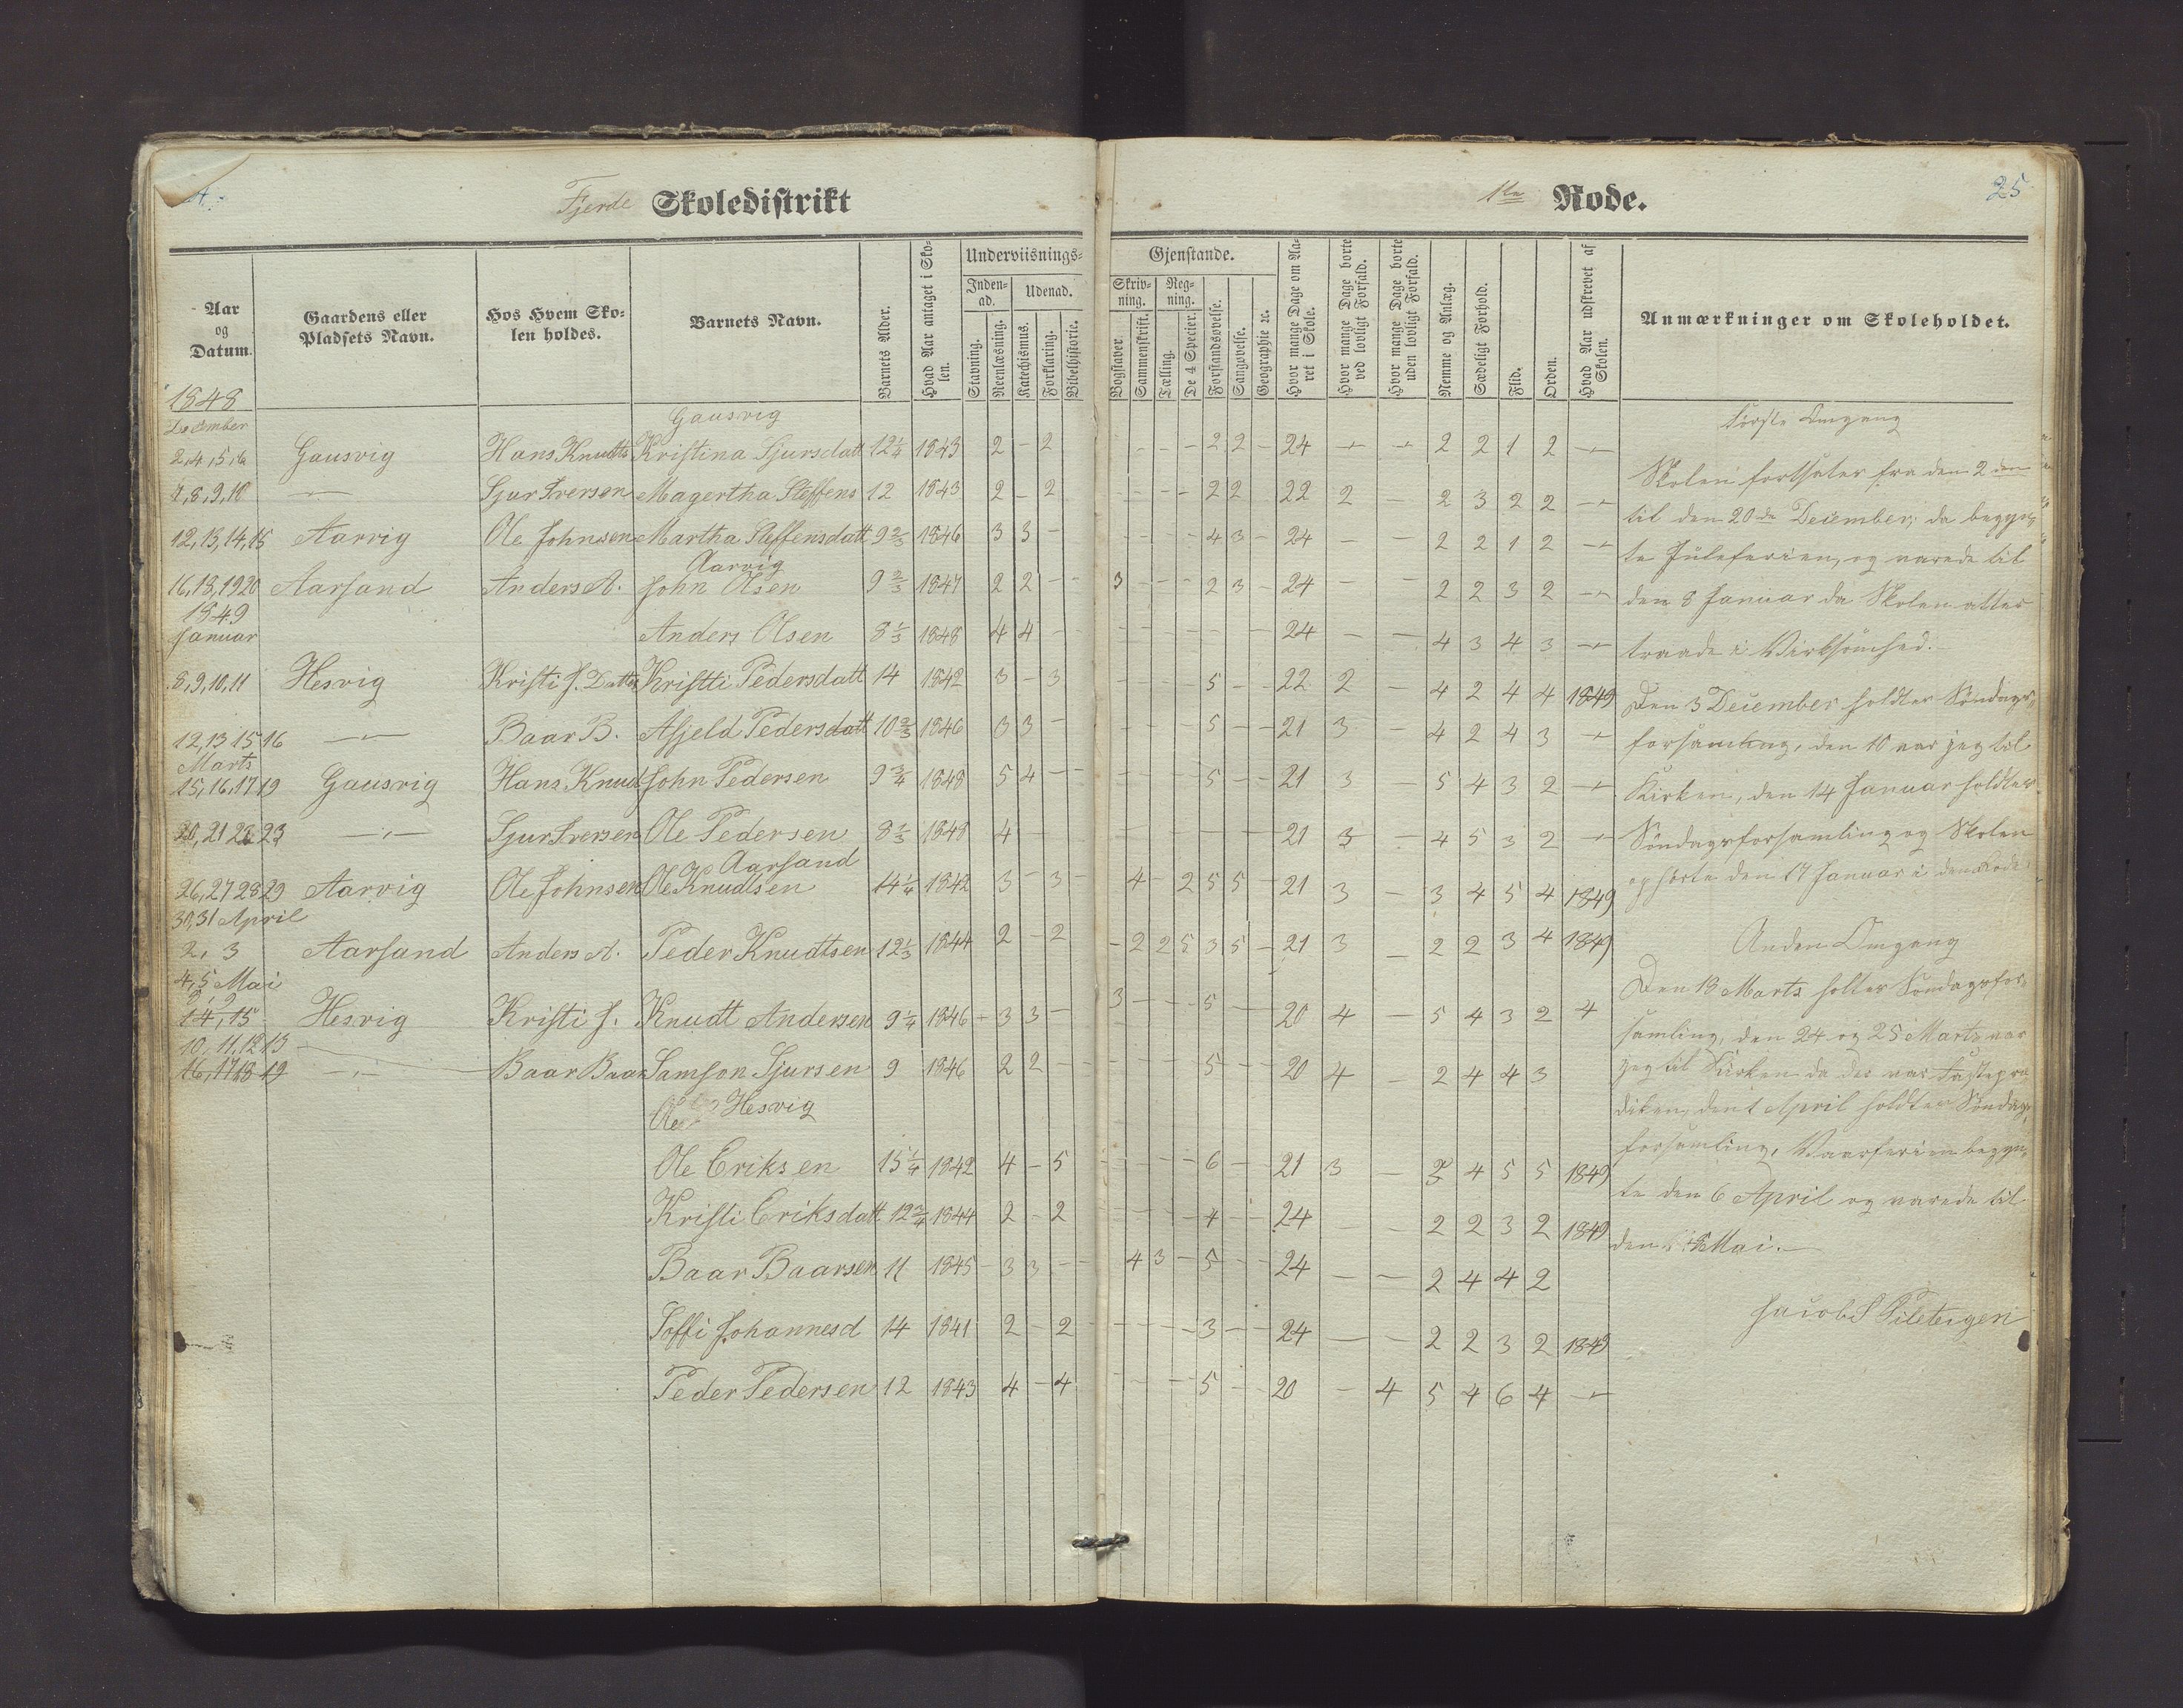 4.
Fjerde Skoledistrikt
1ste Rode.
25
Aar og Datum.
Gaardens eller Pladsets Navn.
Hos Hvem Skolen holdes.
Barnets Navn.
Barnets Alder.
Hvad Aar antaget i Skolen.
Underviisnings-
Inden-ad.
Udenad.
Stavning.
Reenlæsning.
Katechismus.
Forklaring.
Bibelhistorie.
Gjenstande.
Skriv-ning.
Reg-ning.
Bogstaver.
Sammenskrift.
Tælling.
De 4 Specier.
Forstandsøvelse.
Sangøvelse.
Geographie ꝛc.
Hvor mange Dage om Aaret i Skole.
Hvor mange Dage borte ved lovligt Forfald.
Hvor mange Dage borte uden lovligt Forfald.
Nemme og Anlæg.
Sædeligt Forhold.
Flid.
Orden.
Hvad Aar udskrevet af Skolen.
Anmærkninger om Skoleholdet.
1848
December
Gausvig
2,4,5,6 Gausvig Hans Knudts Kristina Sjursdatt 12¼ 1843 2 - 2 - - - 2 2 - 24 - - 2 2 1 2
7,8,9,18 Sjur Iversen Magertha Steffens 12 1843 2 - 2 - - - - 2 2 22 2 - 2 3 2 2
12,13,14,15 Aarvig Ole Johnsen Martha Steffensdatt 9⅔ 1846 3 3 - - - - - 4 3 - 24 - - 2 2 1 2
Aarvig
16,18,19 20 Aarsand Anders A. John Olsen 9⅔ 1847 2 2 - - 3 - - - 2 3 - 24 - - 2 2 3 2
1849
Januar
Anders Olsen 8⅓ 1848 4 4 - - 24 - - 4 3 4 3
8,9,10,11 Hesvig Kristi J. Datter Kristti Pedersdatt 14 1842 3 - 3 - - - - 5 - - 22 2 - 4 2 4 4 1849
12,13 15 16 Baar B. Asjeld Pedersdatt 10⅔ 1846 3 3 - - - - 5 - - 21 3 - 4 2 4 3
Marts
15,16,17 19 Gausvig Hans Knud John Pedersen 9¾ 1848 5 4 - - - - - - 5 - - 21 3 - 5 4 3 2
20,21 22 23 Sjur Iversen Ole Pedersen 8⅓ 1848 4 - 21 3 - 4 5 3 2
Aarsand
26,27 28 29 Aarvig Ole Johnsen Ole Knudtsen 14¼ 1842 3 - 3 - 4 - 2 5 5 - 21 3 - 3 4 5 4 1849
30,31 April
2, 3 Aarsand Anders A. Peder Knudtsen 12⅓ 1844 2 - 2 - 2 2 5 3 5 - 21 3 - 2 2 3 4 1849
4,5 Mai
8, 9
14, 15 Hesvig Kristi J. Knudt Andersen 9¼ 1846 - 3 3 - 3 - - - 5 - 20 4 - 5 4 3 2 4
10, 11, 12 13
16, 17 18 19 Baar Baar Samson Sjursen 9 1846 2 2 - - - - - 5 - - 20 4 - 2 4 4 3
Ole Hesvig
Ole Eriksen 15¼ 1842 4 - 5 - - - - 6 - - 21 3 - 2 4 5 5 1849
Kristi Eriksdatt 12¾ 1844 2 - 2 - - - - 4 - - 24 - - 2 2 3 2 1849
Baar Baarsen 11 1845 - 3 3 - - 4 3 - 5 - - 24 - - 2 4 4 2
Soffi Johannesd 14 1841 2 - 2 - - - - 3 - - 24 - - 2 2 3 2 1849
Peder Pedersen 12 1843 4 - 4 - - - - 5 - - 20 - 4 5 4 6 4
Første Omgang
Skolen fortsates fra den 2den
til den 20de December; da begyn-
te Juleferien, og varede til
den 8 Januar da Skolen atter
traade i Virksomhed.
Den 3 December holdtes Søndags-
forsamling, den 10 var jeg til
Kirken, den 14 Januar holdtes
Søndagsforsamling og Skolen
ophørte den 17 Januar i denne Rode
Anden Omgang
Den 18 Marts holtes Søndagsfor-
samling, den 24 og 25 Marts var
jeg til Kirken da der var Fastepræ-
diken, den 1 April holdtes Søndags-
forsamling, Vaarferien begyn-
te den 6 April og varede til
den Mai.
Jacob S